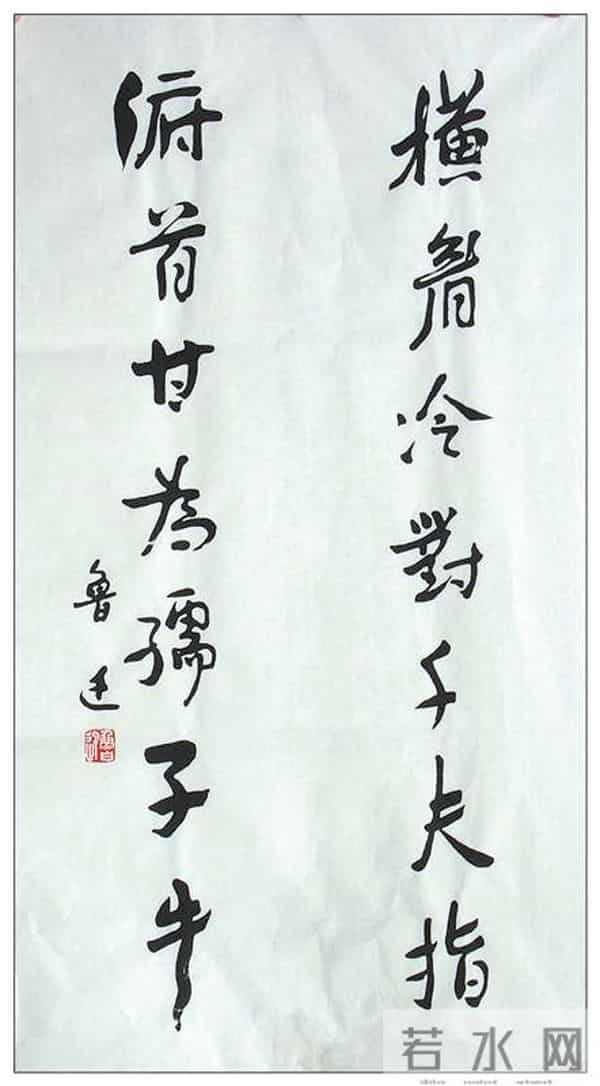 横眉冷對千夫指
俯首甘為孺子牛
魯迅
若水网